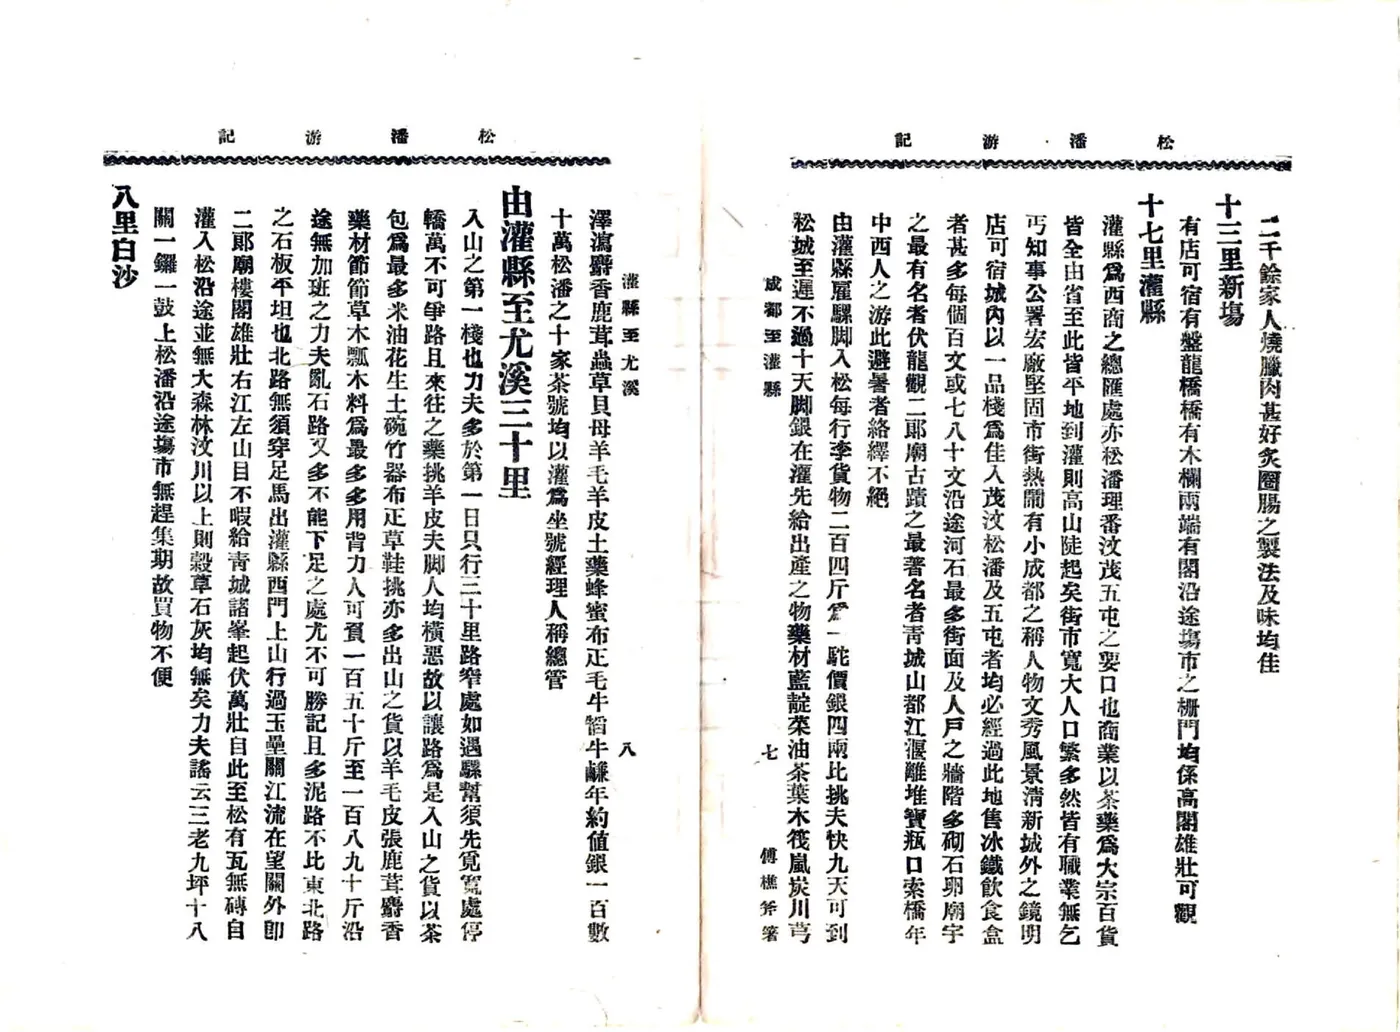 松潘游記
二千餘家人燒臘肉甚好炙圈腸之製法及味均佳
十三里新場
有店可宿有盤龍橋橋有木欄兩端有閣沿途場市之柵門均係高閣雄壯可觀
十七里灌縣
灌縣爲西商之總匯處亦松潘理番汶茂五屯之要口也商業以茶藥爲大宗百貨
皆全由省至此皆平地到灌則高山陡起矣街市寬大人口繁多然皆有職業無乞
丐知事公署宏廠堅固市街熱鬧有小成都之稱人物文秀風景清新城外之鏡明
店可宿城內以一品棧爲佳入茂汶松潘及五屯者均必經過此地售冰鐵飲食盒
者甚多每個百文或七八十文沿途河石最多街面及人戶之牆階多砌石卵廟宇
之最有名者伏龍觀二郎廟古蹟之最著名者青城山都江堰離堆寶瓶口索橋年
中西人之游此避暑者絡繹不絕
由灌縣雇騾脚入松每行李貨物二百四斤爲一駝價銀四兩比挑夫快九天可到
松城至遲不過十天脚銀在灌先給出產之物藥材藍靛菜油茶葉木筏嵐炭川芎
成都至灌縣
七
傅樵斧箸
松潘游記
灌縣至尤溪
八
澤瀉麝香鹿茸蟲草貝母羊毛羊皮土藥蜂蜜布正毛牛犏牛鹻年約値銀一百數
十萬松潘之十家茶號均以灌爲坐號經理人稱總管
由灌縣至尤溪三十里
入山之第一棧也力夫多於第一日只行三十里路窄處如遇騾幫須先覓寬處停
轎萬不可爭路且來往之藥挑羊皮夫脚人均橫惡故以讓路爲是入山之貨以茶
包爲最多米油花生土碗竹器布正草鞋挑亦多出山之貨以羊毛皮張鹿茸麝香
藥材節節草木瓢木料爲最多多用背力人可負一百五十斤至一百八九十斤沿
途無加班之力夫亂石路又多不能下足之處尤不可勝記且多泥路不比東北路
之石板平坦也北路無須穿足馬出灌縣西門上山行過玉壘關江流在望關外卽
二郎廟樓閣雄壯右江左山目不暇給靑城諸峯起伏萬壯自此至松有瓦無磚自
灌入松沿途並無大森林汶川以上則穀草石灰均無矣力夫謠云三老九坪十八
關一鑼一鼓上松潘沿途場市無趕集期故買物不便
八里白沙